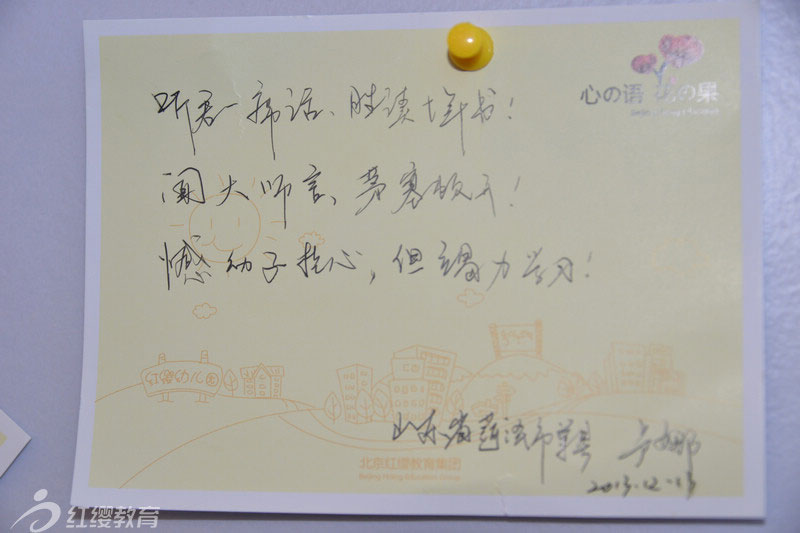 心の语 の果
听君一席话、胜读十年书！
闻大师言、茅塞顿开！
憾幼子拖心，但竭力学习！
红缨幼儿园
山东省菏泽市单县 卢娜
2013.12.13
北京红缨教育集团
Beijing Hoing Education Group
红缨教育